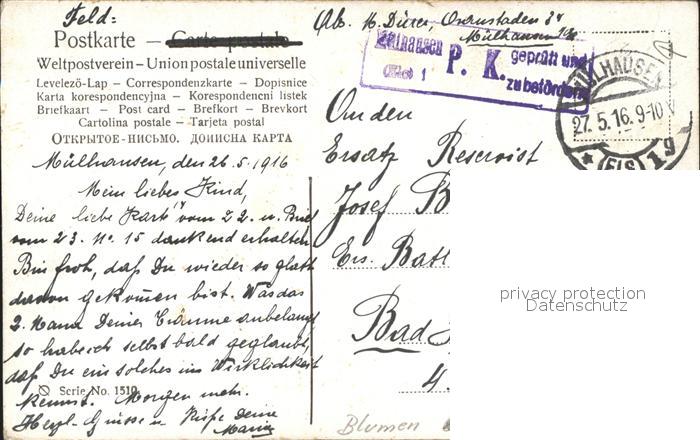 Feld:
Postkarte — Carte postale
Weltpostverein – Union postale universelle
Levelező-Lap — Correspondenzkarte — Dopisnice
Karta korespondencyjna — Korespondenční lístek
Briefkaart — Post card — Brefkort — Brevkort
Cartolina postale — Tarjeta postal
ОТКРЫТОЕ-ПИСЬМО. ДОПИСНА КАРТА
Abs. M. Dürer,
Mülhausen
Mülhausen
(Els) 1
P. K.
geprüft und
zu befördern
MÜLHAUSEN
27. 5. 16. 9-10 V
* (ELS) 1 g
Mülhausen, den 26.5.1916
Mein liebes Kind,
Deine liebe Karte vom 22. u. Brief
vom 23. No. 15 dankend erhalten
Bin froh, daß Du wieder so glatt
davon gekommen bist. Was das
2. Mann Deiner Träume anbelangt
so habe ich selbst bald geglaubt,
daß Du ein solches in Wirklichkeit
kennst. Morgen mehr.
Herzl. Grüsse u. Küsse Deine
Maria
Serie No. 1510
An den
Ersatz Reservist
Josef B
Ers. Batl
Bad
4.
Blumen
privacy protection
Datenschutz